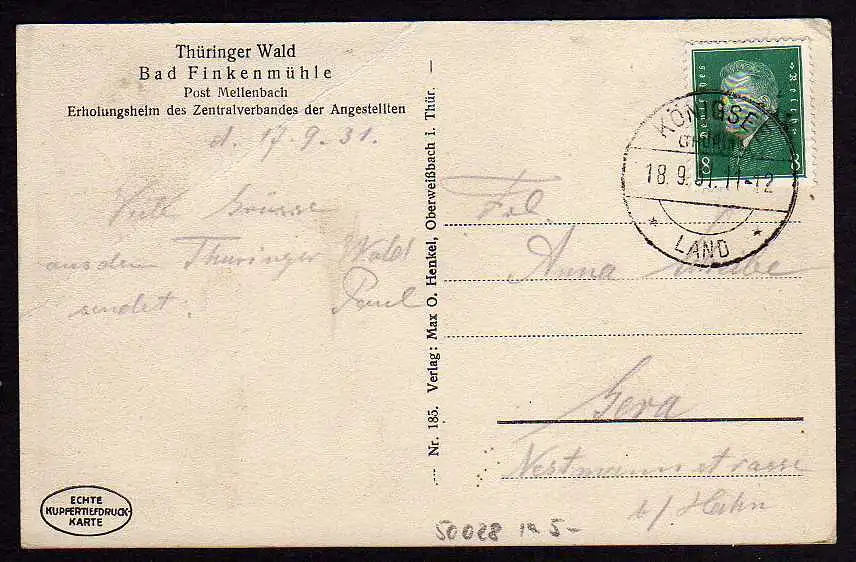 Thüringer Wald
Bad Finkenmühle
Post Mellenbach
Erholungsheim des Zentralverbandes der Angestellten
d. 17.9.31.
Viele Grüsse
aus dem Thüringer Wald
sendet:
Paul
ECHTE
KUPFERTIEFDRUCK-
KARTE
Nr. 185. Verlag: Max O. Henkel, Oberweißbach i. Thür.
8 8
KÖNIGSEE
(THÜRING
18.9.31.11-12
* LAND *
Frl.
Anna
Gera
strasse
b/ Hahn
50028 5-